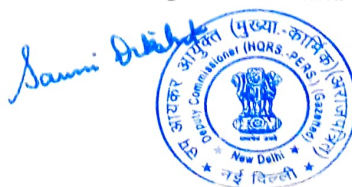 उप आयकर आयुक्त (मुख्या.-कार्मिक)(अराजपत्रित)
Deputy Commissioner (HQRS.-PERS.) (Gazetted)
New Delhi
नई दिल्ली